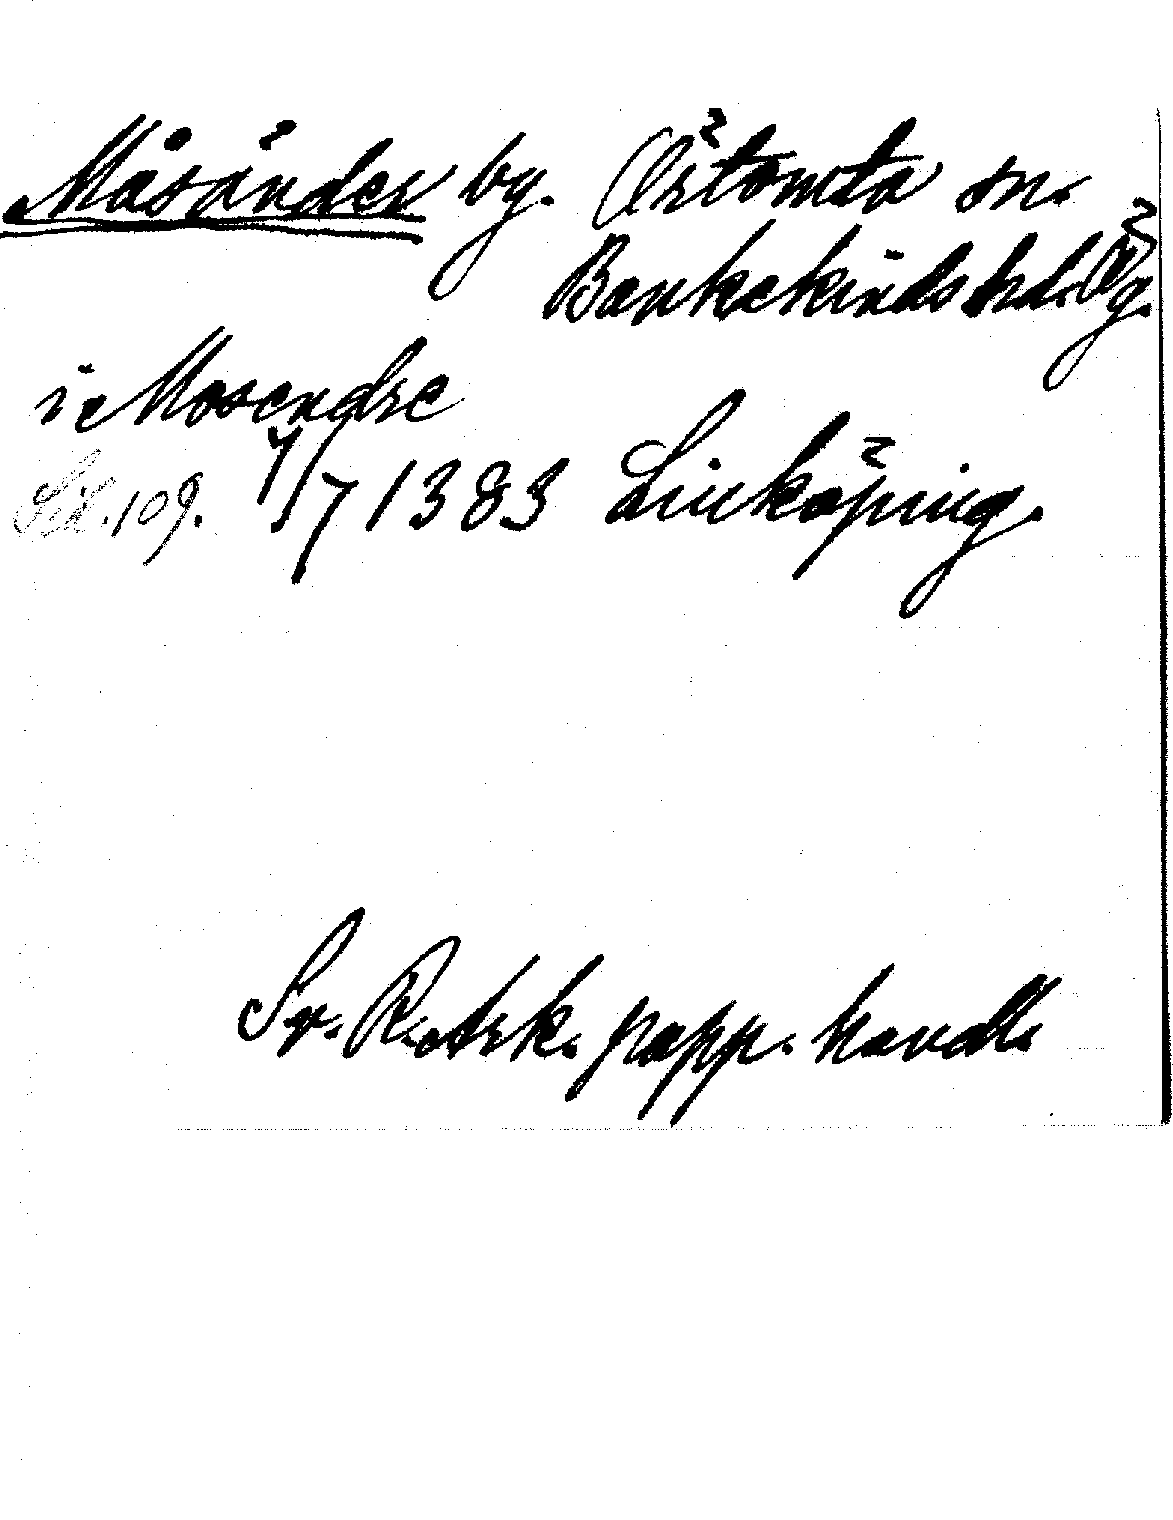 Måsänder by. Örtomta sn.
Bankekinds hd. Ög.
i Mosendre
Sid. 109. 4/7 1383 Linköping.
Sv. R. Ark. papp. handl.